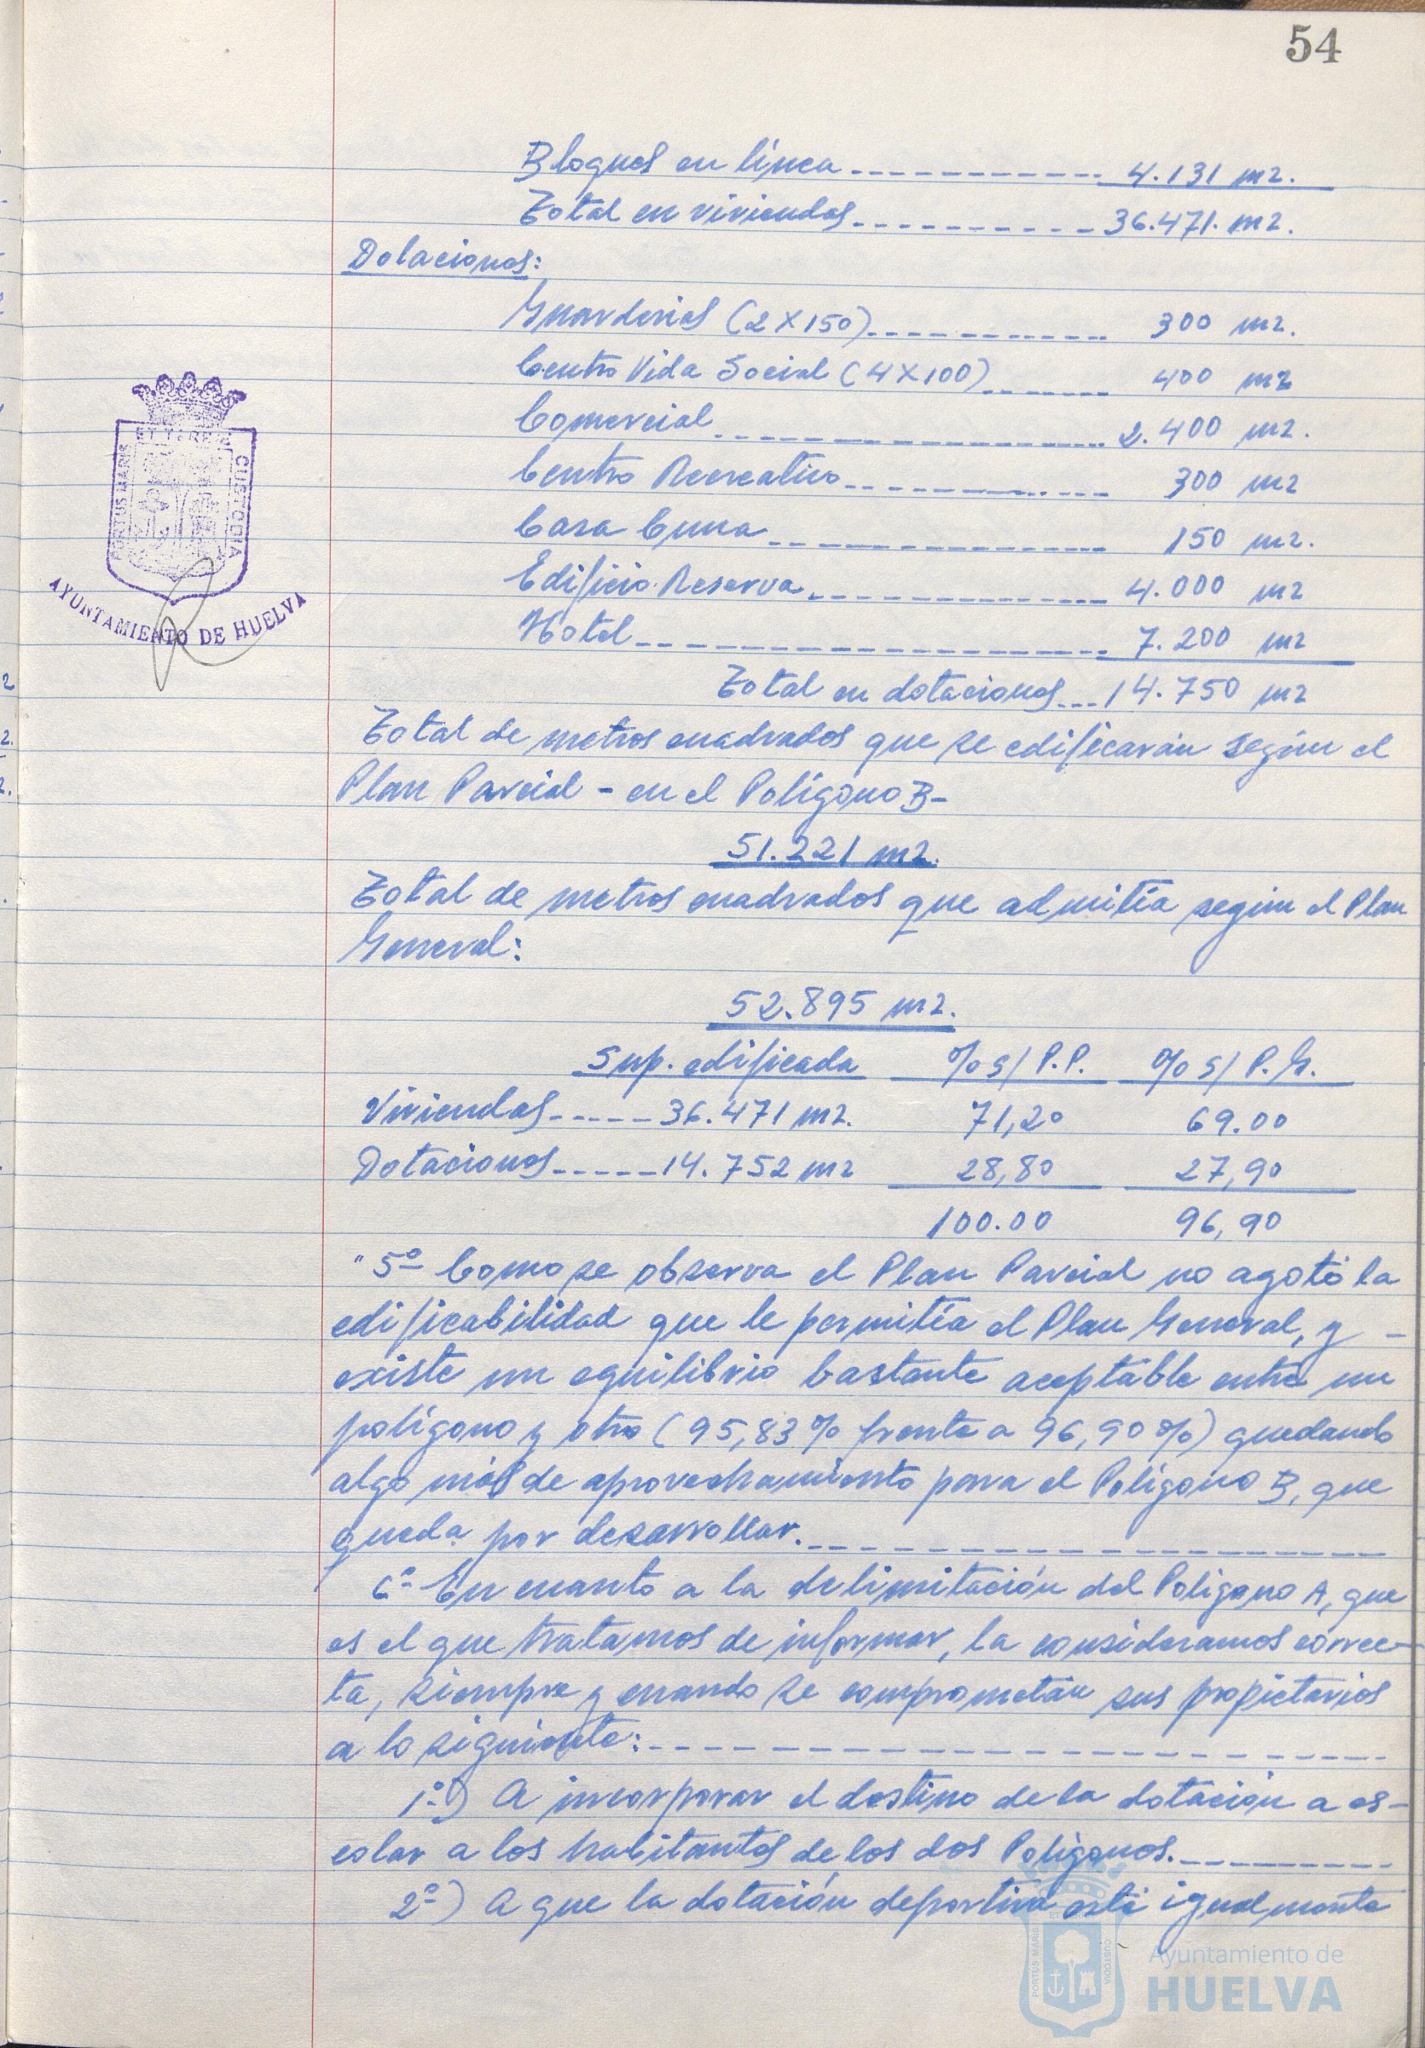 54
Bloques en línea ----------- 4.131 m2.
Total en viviendas ---------- 36.471. m2.
Dotaciones:
Guarderias (2 X 150) ---------- 300 m2.
Centro Vida Social (4 X 100) ------- 400 m2
Comercial ---------------- 2.400 m2.
Centro Recreativo ----------- 300 m2
Casa Cuna -------------- 150 m2.
Edificio Reserva ------------ 4.000 m2
Hotel ------------------- 7.200 m2
Total en dotaciones --- 14.750 m2
Total de metros cuadrados que se edificarán según el
Plan Parcial - en el Polígono B-
51.221 m2.
Total de metros cuadrados que admitía según el Plan
General:
52.895 m2.
Sup. edificada % s/ P.P. % s/ P.G.
Viviendas ----- 36.471 m2. 71,20 69.00
Dotaciones ----- 14.752 m2 28,80 27,90
100.00 96,90
"5º Como se observa el Plan Parcial no agotó la
edificabilidad que le permitía el Plan General, y -
existe un equilibrio bastante aceptable entre un
polígono y otro (95,83% frente a 96,90%) quedando
algo más de aprovechamiento para el Polígono B, que
queda por desarrollar. ------------
6º- En cuanto a la delimitación del Poligono A, que
es el que tratamos de informar, la consideramos correc-
ta, siempre y cuando se comprometan sus propietarios
a lo siguiente: ---------------
1º-) A incorporar el destino de la dotación a es-
colar a los habitantes de los dos Polígonos. -------
2º-) A que la dotación deportiva esté igualmente
PORTUS MARIS ET TERRE CUSTODIA
AYUNTAMIENTO DE HUELVA
PORTUS MARIS CUSTODIA
Ayuntamiento de
HUELVA